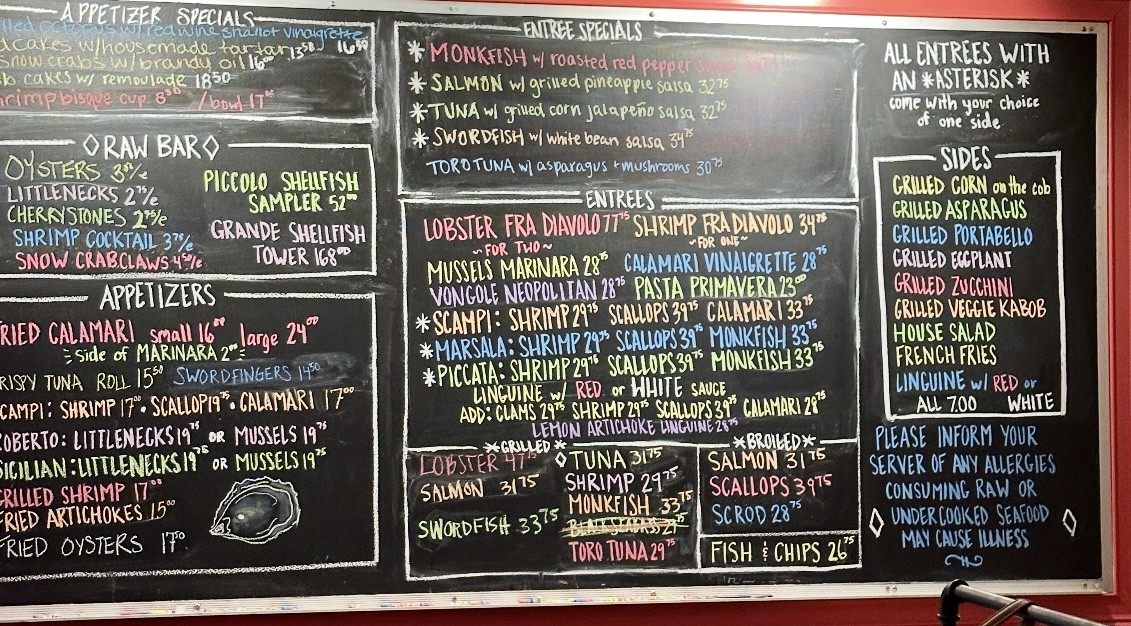 APPETIZER SPECIALS
octopus w/ red wine shallot vinaigrette 16⁵⁰
cakes w/ housemade tartar 13⁵⁰
snow crabs w/ brandy oil 16⁰⁰
cakes w/ remoulade 18⁵⁰
shrimp bisque cup 8⁵⁰ / bowl 17⁰⁰
RAW BAR
OYSTERS 3⁵⁰/e
LITTLENECKS 2⁷⁵/e
CHERRYSTONES 2⁷⁵/e
SHRIMP COCKTAIL 3⁷⁵/e
SNOW CRABCLAWS 4⁵⁰/e
PICCOLO SHELLFISH
SAMPLER 52⁰⁰
GRANDE SHELLFISH
TOWER 168⁰⁰
APPETIZERS
FRIED CALAMARI small 16⁰⁰ large 24⁰⁰
side of MARINARA 2⁰⁰
CRISPY TUNA ROLL 15⁵⁰ SWORDFINGERS 14⁵⁰
SCAMPI: SHRIMP 17⁰⁰ • SCALLOP 19⁷⁵ • CALAMARI 17⁰⁰
ROBERTO: LITTLENECKS 19⁷⁵ OR MUSSELS 19⁷⁵
SICILIAN: LITTLENECKS 19⁷⁵ OR MUSSELS 19⁷⁵
GRILLED SHRIMP 17⁰⁰
FRIED ARTICHOKES 15⁰⁰
FRIED OYSTERS 17⁵⁰
ENTREE SPECIALS
* MONKFISH w/ roasted red pepper
* SALMON w/ grilled pineapple salsa 32⁷⁵
* TUNA w/ grilled corn jalapeño salsa 32⁷⁵
* SWORDFISH w/ white bean salsa 34⁷⁵
TORO TUNA w/ asparagus + mushrooms 30⁷⁵
ENTREES
LOBSTER FRA DIAVOLO 77⁷⁵ SHRIMP FRA DIAVOLO 34⁷⁵
~FOR TWO~ ~FOR ONE~
MUSSELS MARINARA 28⁷⁵ CALAMARI VINAIGRETTE 28⁷⁵
VONGOLE NEOPOLITAN 28⁷⁵ PASTA PRIMAVERA 23⁰⁰
* SCAMPI: SHRIMP 29⁷⁵ SCALLOPS 39⁷⁵ CALAMARI 33⁷⁵
* MARSALA: SHRIMP 29⁷⁵ SCALLOPS 39⁷⁵ MONKFISH 33⁷⁵
* PICCATA: SHRIMP 29⁷⁵ SCALLOPS 39⁷⁵ MONKFISH 33⁷⁵
LINGUINE w/ RED or WHITE SAUCE
ADD: CLAMS 29⁷⁵ SHRIMP 29⁷⁵ SCALLOPS 39⁷⁵ CALAMARI 28⁷⁵
LEMON ARTICHOKE LINGUINE 28⁷⁵
*GRILLED*
LOBSTER 47⁷⁵
SALMON 31⁷⁵
SWORDFISH 33⁷⁵
◇ TUNA 31⁷⁵
SHRIMP 29⁷⁵
MONKFISH 33⁷⁵
TORO TUNA 29⁷⁵
*BROILED*
SALMON 31⁷⁵
SCALLOPS 39⁷⁵
SCROD 28⁷⁵
FISH & CHIPS 26⁷⁵
ALL ENTREES WITH
AN *ASTERISK*
come with your choice
of one side
SIDES
GRILLED CORN on the cob
GRILLED ASPARAGUS
GRILLED PORTABELLO
GRILLED EGGPLANT
GRILLED ZUCCHINI
GRILLED VEGGIE KABOB
HOUSE SALAD
FRENCH FRIES
LINGUINE w/ RED or
ALL 7.00 WHITE
PLEASE INFORM YOUR
SERVER OF ANY ALLERGIES
CONSUMING RAW OR
UNDERCOOKED SEAFOOD
MAY CAUSE ILLNESS